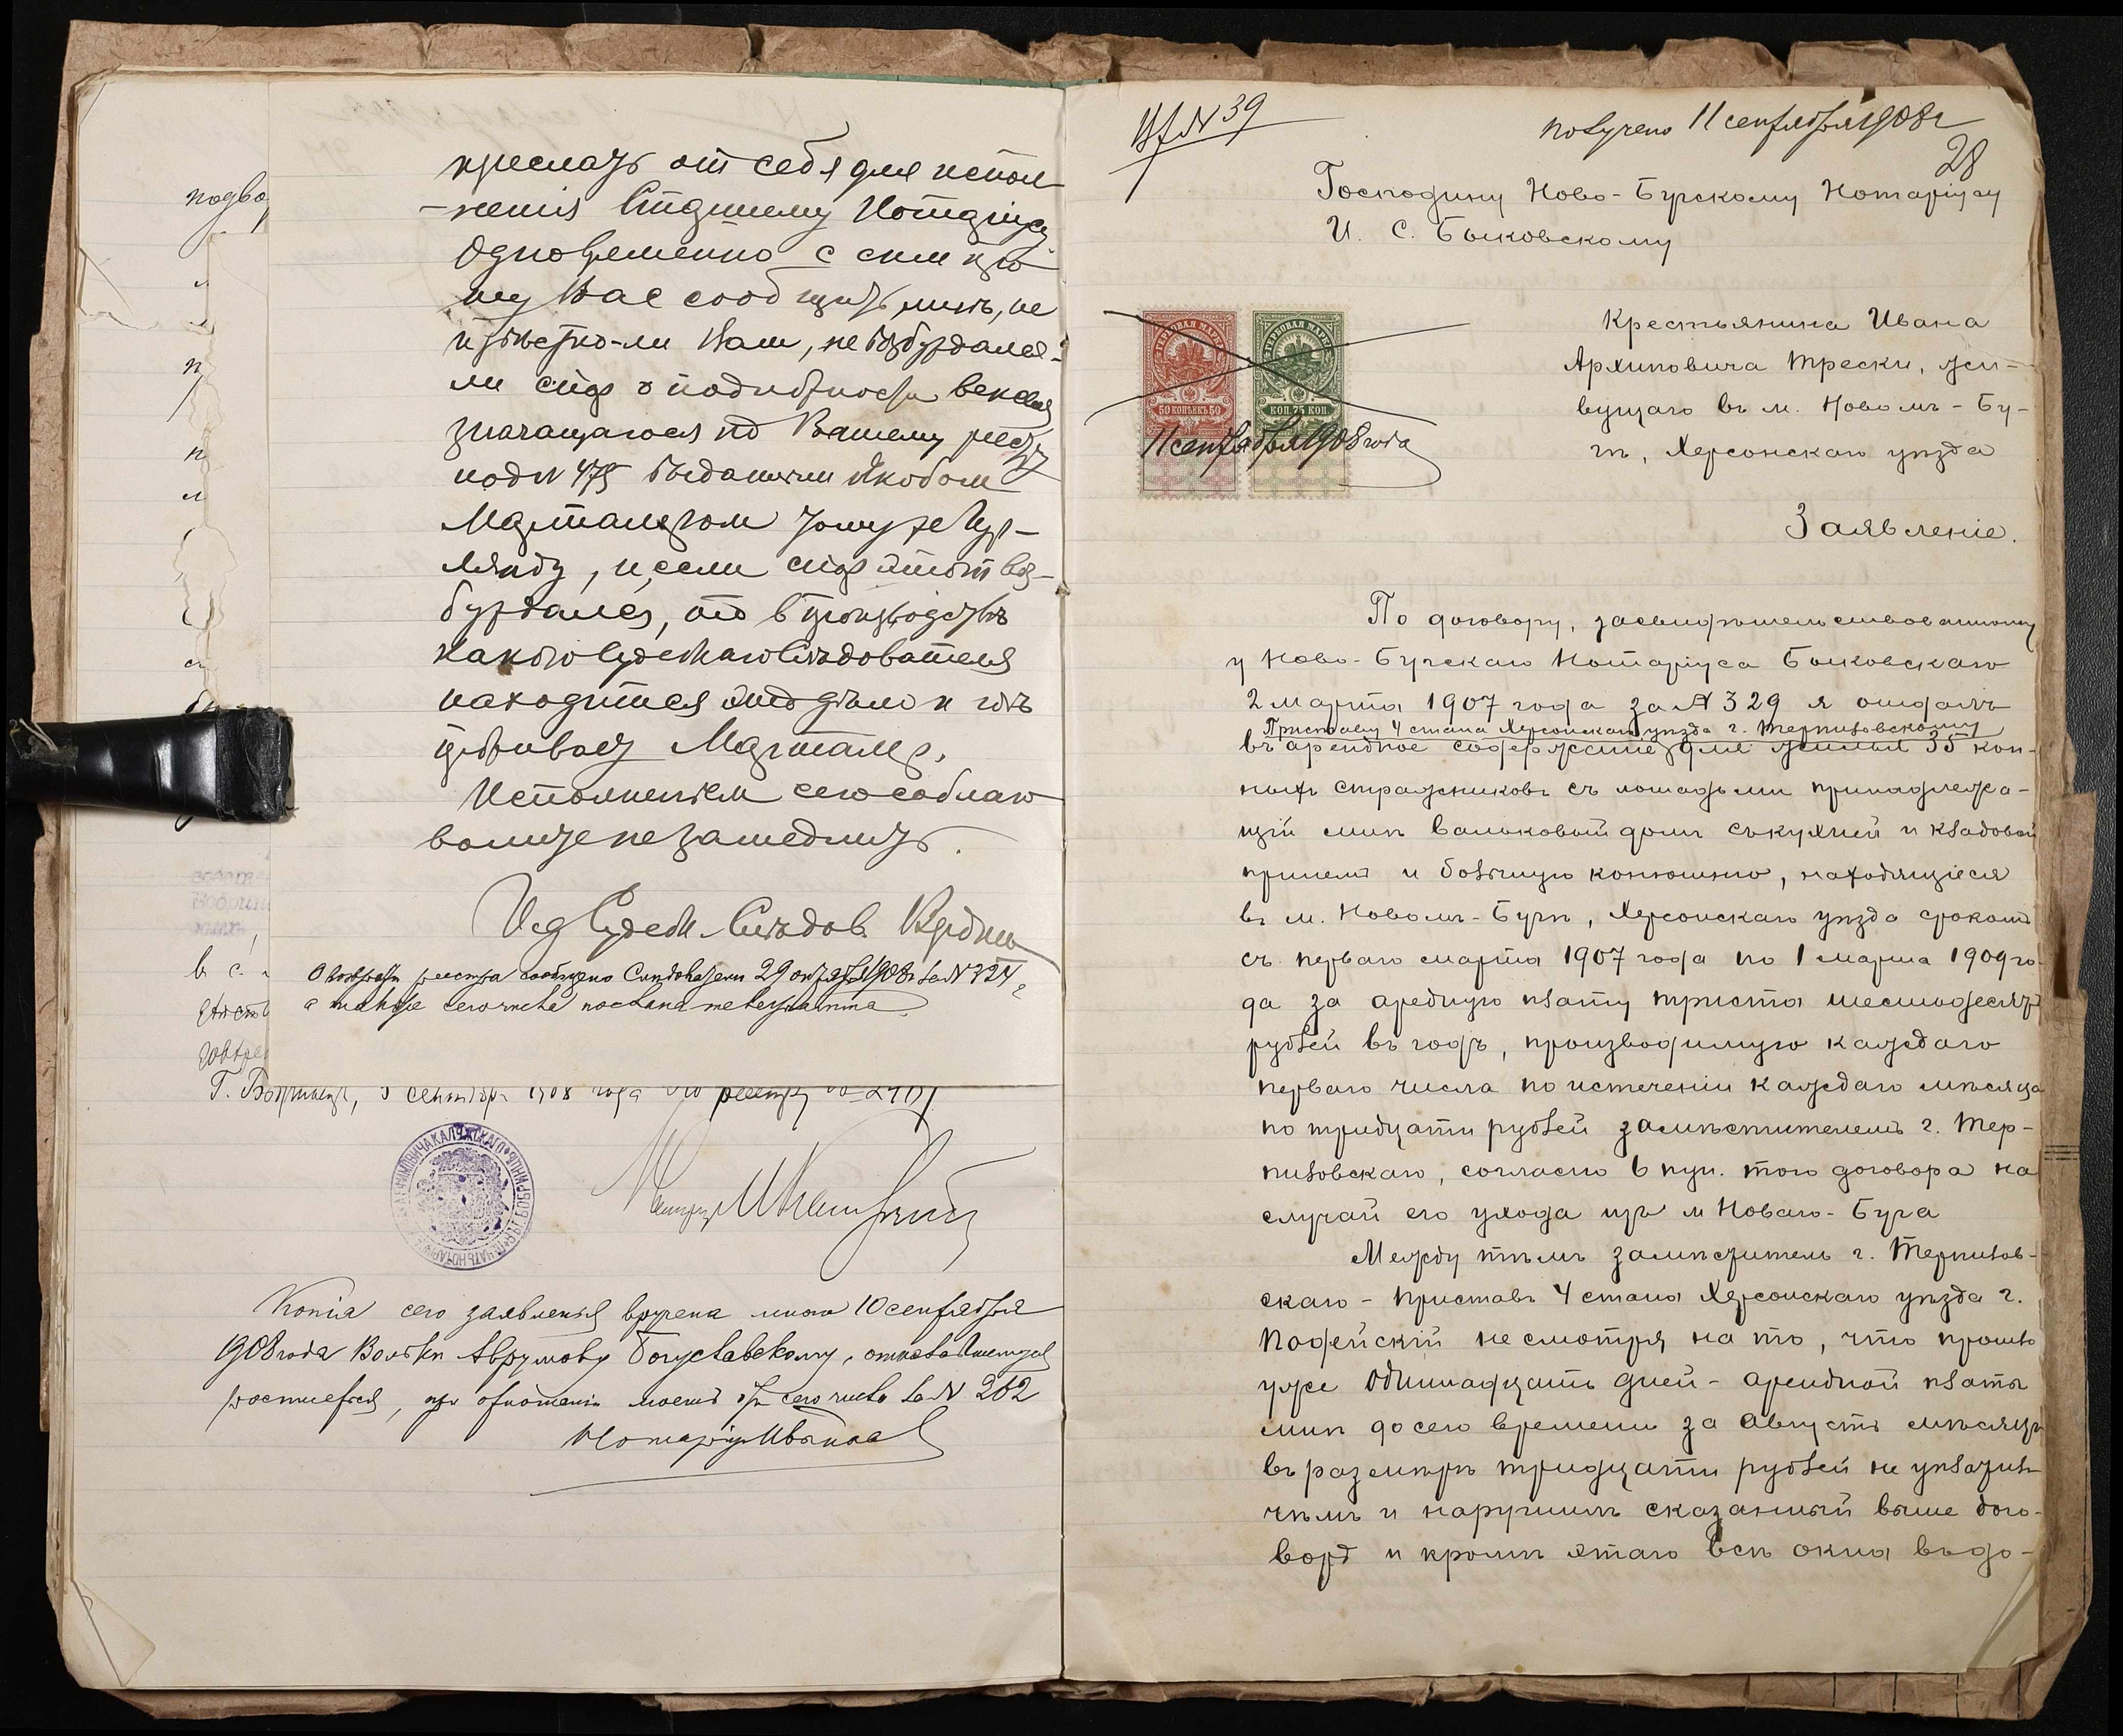 подво
переслать от себя для испол-
-ненія Старшему Нотаріусу
Одновременно с сим про-
шу Вас сообщить мнѣ, не
извѣстно-ли Вам, не возбуждался-
ли спор о подложности векселя
значащагося по Вашему реестру
под N 475 выданным Якобом
тому же Гур-
лянду, и если спор этот воз-
буждался, то в производствѣ
какого Судебнаго Слѣдователя
находится это дѣло и гдѣ
Исполненіем сего соблаго
волите не замедлить.
И.д. Судебн. Слѣдов.
О возвратѣ реестра сообщено Слѣдователю 29 октября 1908 г. за N 324,
а также сего числа послана телеграмма
в с.
Г. Бобринецъ, 5 сентября 1908 года по реестру
Копія сего заявленія вручена мною 10 сентября
1908 года Вольки Аврумову Богуславскому, отказавшемуся
росписаться, при отношеніи моемъ отъ сего числа за N 262
Нотаріусъ
N 39
Получено 11 сентября 1908 г
28
Господину Ново-Бугскому Нотаріусу
И. С. Быковскому
ГЕРБОВАЯ МАРКА ГЕРБОВАЯ МАРКА
50 КОПѢЕКЪ 50 КОП. 75 КОП.
11 сентября 1908 года
Крестьянина Ивана
Архиповича Трески, жи-
вущаго въ м. Новомъ-Бу-
гѣ, Херсонскаго уѣзда
Заявленіе.
По договору, засвидѣтельствованному
у Ново-Бугскаго Нотаріуса Быковскаго
2 марта 1907 года за N 329 я отдалъ
Приставу 4 стана Херсонскаго уѣзда г. Терпиловскому
въ арендное содержаніе для жилья 35 кон-
ныхъ стражниковъ съ лошадьми принадлежа-
щій мнѣ вальковый домъ съ кухней и кладовой
при немъ и большую конюшню, находящіеся
въ м. Новомъ-Бугѣ, Херсонскаго уѣзда срокомъ
съ перваго марта 1907 года по 1 марта 1909 го-
да за аредную плату триста шестьдесятъ
рублей въ годъ, производимую каждаго
перваго числа по истеченіи каждаго мѣсяца
по тридцати рублей замѣстителемъ г. Тер-
пиловскаго, согласно 6 пун. того договора на
случай его ухода изъ м Новаго-Буга
Между тѣмъ замѣститель г. Терпилов-
скаго - Приставъ 4 стана Херсонскаго уѣзда г.
не смотря на то, что прошло
уже одиннадцать дней - арендной платы
мнѣ до сего времени за Августъ мѣсяцъ
въ размѣрѣ тридцати рублей не уплатилъ
чѣмъ и нарушилъ сказанный выше дого-
воръ и кромѣ этаго всѣ окна въ до-